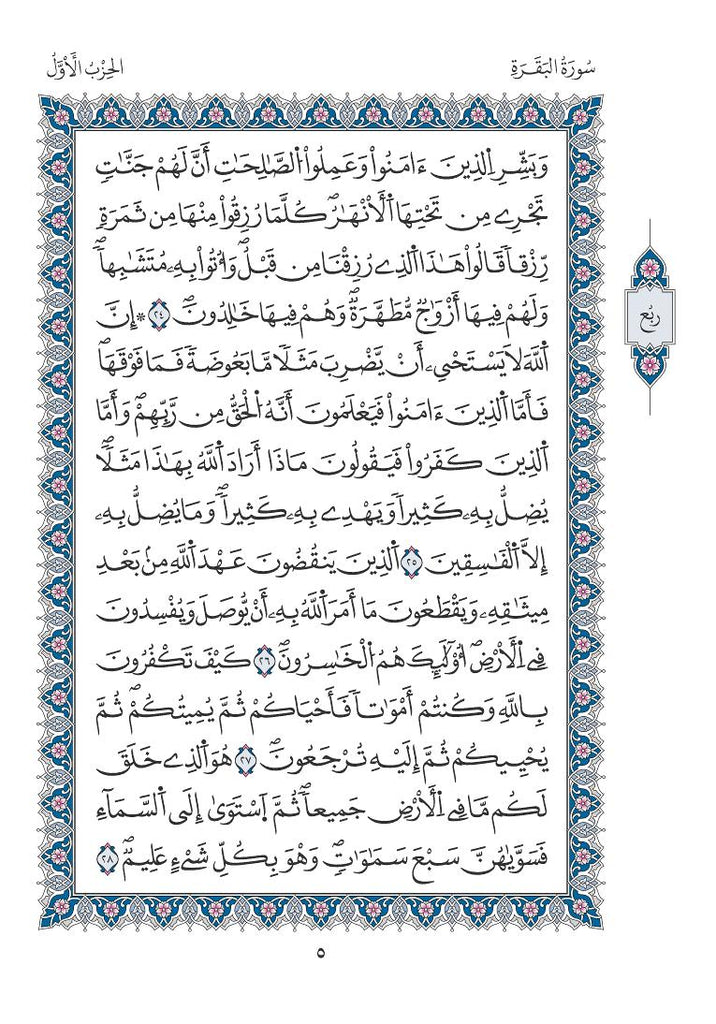 سُورَةُ الْبَقَرَةِ
الْحِزْبُ الْأَوَّلُ
وَبَشِّرِ اِ۬لذِينَ ءَامَنُواْ وَعَمِلُواْ اُ۬لصَّٰلِحَٰتِ أَنَّ لَهُمْ جَنَّٰتٖ
تَجْرِے مِن تَحْتِهَا اَ۬لْأَنْهَٰرُۖ كُلَّمَا رُزِقُواْ مِنْهَا مِن ثَمَرَةٖ
رِّزْقاٗ قَالُواْ هَٰذَا اَ۬لذِے رُزِقْنَا مِن قَبْلُۖ وَأُتُواْ بِهِۦ مُتَشَٰبِهاٗۖ
وَلَهُمْ فِيهَا أَزْوَٰجٞ مُّطَهَّرَةٞۖ وَهُمْ فِيهَا خَٰلِدُونَۖ ٢٤ * إِنَّ
اَ۬للَّهَ لَا يَسْتَحْيِۦ أَنْ يَّضْرِبَ مَثَلاٗ مَّا بَعُوضَةٗ فَمَا فَوْقَهَاۖ
فَأَمَّا اَ۬لذِينَ ءَامَنُواْ فَيَعْلَمُونَ أَنَّهُ اُ۬لْحَقُّ مِن رَّبِّهِمْۖ وَأَمَّا
اَ۬لذِينَ كَفَرُواْ فَيَقُولُونَ مَاذَا أَرَادَ اَ۬للَّهُ بِهَٰذَا مَثَلاٗۖ
يُضِلُّ بِهِۦ كَثِيراٗ وَيَهْدِے بِهِۦ كَثِيراٗۖ وَمَا يُضِلُّ بِهِۦ
إِلَّا اَ۬لْفَٰسِقِينَ ٢٥ اَ۬لذِينَ يَنقُضُونَ عَهْدَ اَ۬للَّهِ مِنۢ بَعْدِ
مِيثَٰقِهِۦ وَيَقْطَعُونَ مَا أَمَرَ اَ۬للَّهُ بِهِۦ أَنْ يُّوصَلَ وَيُفْسِدُونَ
فِے اِ۬لْأَرْضِۖ أُوْلَٰٓئِكَ هُمُ اُ۬لْخَٰسِرُونَۖ ٢٦ كَيْفَ تَكْفُرُونَ
بِاللَّهِ وَكُنتُمْ أَمْوَٰتاٗ فَأَحْيَاكُمْ ثُمَّ يُمِيتُكُمْۖ ثُمَّ
يُحْيِيكُمْ ثُمَّ إِلَيْهِ تُرْجَعُونَۖ ٢٧ هُوَ اَ۬لذِے خَلَقَ
لَكُم مَّا فِے اِ۬لْأَرْضِ جَمِيعاٗۖ ثُمَّ اَ۪سْتَوَىٰ إِلَى اَ۬لسَّمَآءِ
فَسَوَّىٰهُنَّ سَبْعَ سَمَٰوَٰتٖۖ وَهْوَ بِكُلِّ شَےْءٍ عَلِيمٞۖ ٢٨
رُبُع
٥